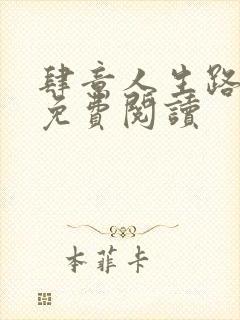 肆意人生路
免費閱讀
本菲卡